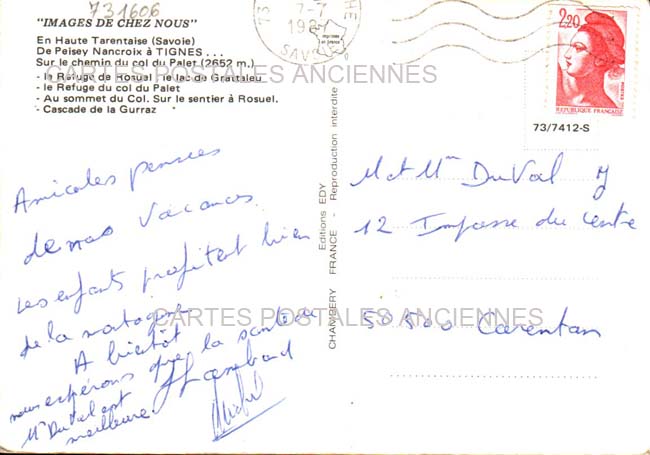 731606
"IMAGES DE CHEZ NOUS"
En Haute Tarentaise (Savoie)
De Peisey Nancroix à TIGNES . . .
Sur le chemin du col du Palet (2652 m.)
- le Refuge de Rosuel - le lac de Grattaleu
- le Refuge du col du Palet
- Au sommet du Col. Sur le sentier à Rosuel.
- Cascade de la Gurraz
CARTES POSTALES ANCIENNES
73
7-7
SAVOIE
2,20
POSTES
REPUBLIQUE FRANÇAISE
73/7412-S
Amicales pensées
de nos vacances.
Les enfants profitent bien
de la montagne.
A bientôt
nous espérons que la santé de
Mr Duval est
meilleure.
Michel
CHAMBERY FRANCE - Reproduction interdite
Editions EDY
M et Mme DuVal J
12 Impasse du Centre
CARTES POSTALES ANCIENNES
50500 Carentan